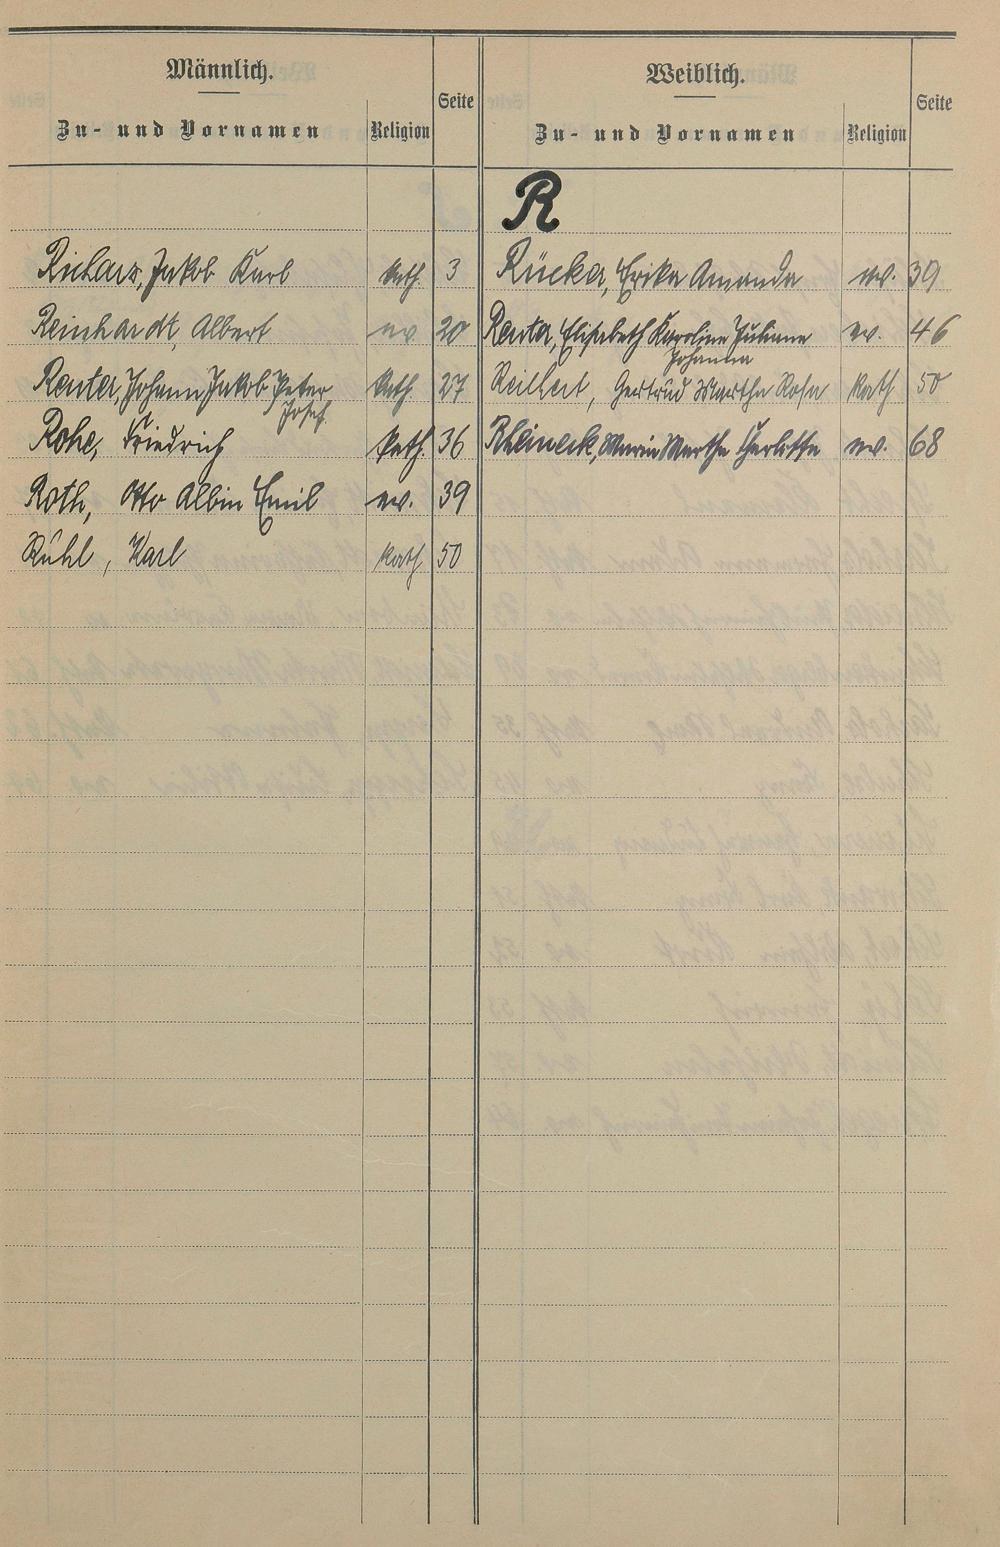 Männlich.
Zu- und Vornamen
Religion
Seite
Weiblich.
Zu- und Vornamen
Religion
Seite
R
Richarz, Jakob Karl kath. 3
Reinhardt, Albert ev. 20
Reuter, Johann Jakob Peter kath. 27
Josef
Rohe, Friedrich kath. 36
Roth, Otto Albin Emil ev. 39
Rühl, Karl kath 50
Rücker, Erika Amanda ev. 39
Reuter, Elisabeth Karoline Juliane ev. 46
Johanna
Gertrud Martha Rosa kath 50
Rheineck, Maria Martha Charlotte ev. 68